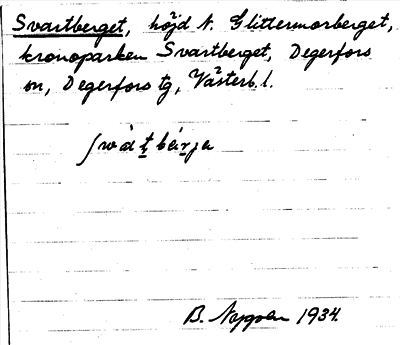 Svartberget, höjd N. Glittermorberget,
kronoparken Svartberget, Degerfors
sn, Degerfors tg, Västerb. l.
B. Nygren 1934.